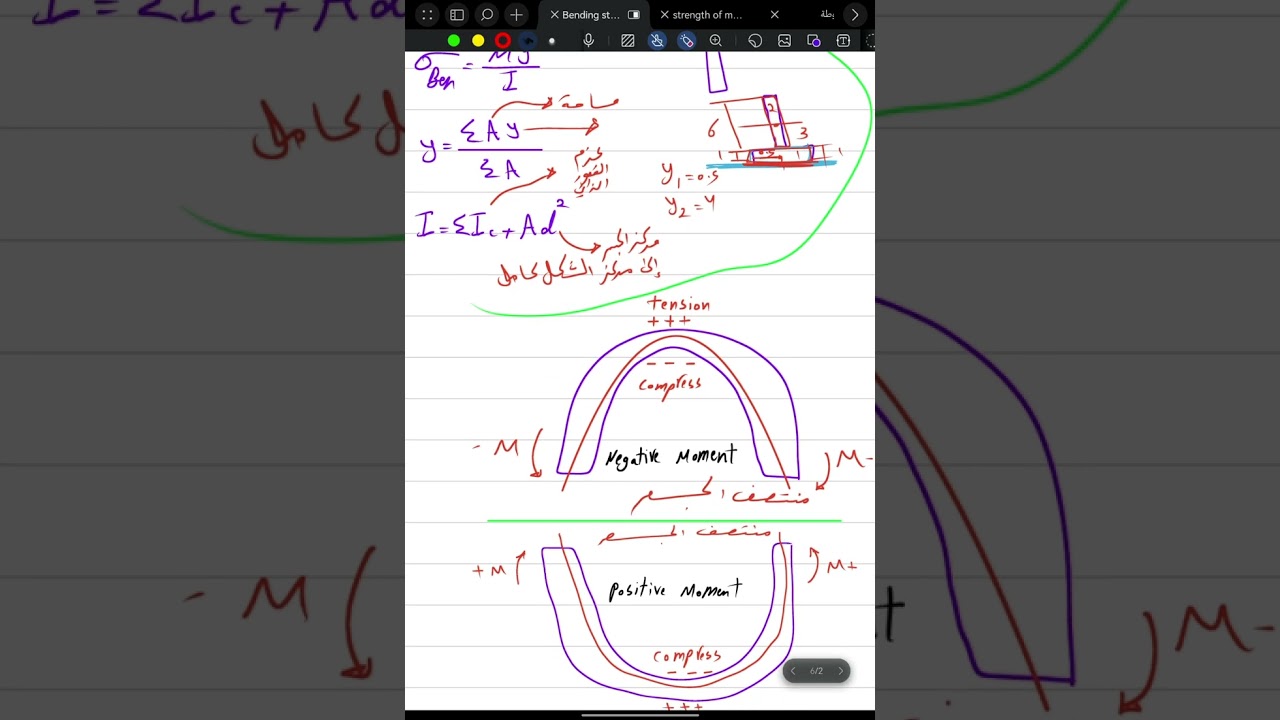 Bending st...
strength of m...
σBen = My/I
مساحة
y = ΣAy/ΣA
عزم
القصور
الذاتي
I = ΣIc + Ad²
مركز الجسم
إلى مركز الشكل كامل
2
6
3
1
0.5
1
1
y₁=0.5
y₂=4
tension
+ + +
- - -
compress
- M
Negative Moment
M-
منتصف الجسر
منتصف الجسر
+ M
Positive Moment
M+
compress
- - -
6/2
+ + +